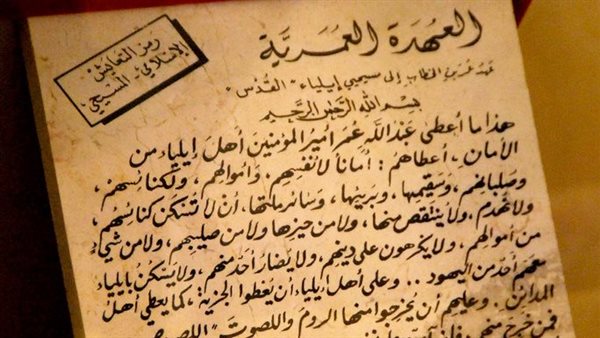 العهدة العمرية
رمز التعايش
الإسلامي - المسيحي
عهد عمر بن الخطاب إلى مسيحيي إيلياء "القدس"
بسم الله الرحمن الرحيم
هذا ما أعطى عبد الله عمر أمير المؤمنين أهل إيلياء من
الأمان، أعطاهم: أماناً لأنفسهم، وأموالهم، ولكنائسهم،
وصلبانهم، وسقيمها، وبريئها، وسائر ملتها، أن لا تسكن كنائسهم،
ولا تهدم، ولا ينتقص منها، ولا من حيزها ولا من صليبهم، ولا من شيءٍ
من أموالهم، ولا يكرهون على دينهم، ولا يضار أحد منهم، ولا يسكن بإيلياء
معهم أحد من اليهود .. وعلى أهل إيلياء أن يعطوا الجزية، كما يعطي أهل
المدائن. وعليهم أن يخرجوا منها الروم واللصوت "اللصوص"
فمن خرج منهم، فإنه آمن